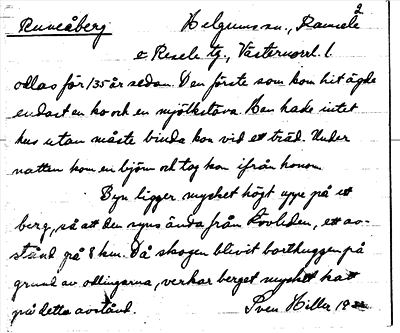 2
Runeåberg Helgums sn., Ramsele
o Resele tg., Västernorrl. l
odlas för 135 år sedan. Den förste som kom hit ägde
endast en ko och en mjölkstäva. Han hade intet
hus utan måste binda kon vid ett träd. Under
natten kom en björn och tog kon ifrån honom.
Byn ligger mycket högt uppe på ett
berg, så att den syns ända från Kovliden, ett av-
stånd på 8 km. Då skogen blivit borthuggen på
grund av odlingarna, verkar berget mycket kalt
på detta avstånd. Sven Hilla 19